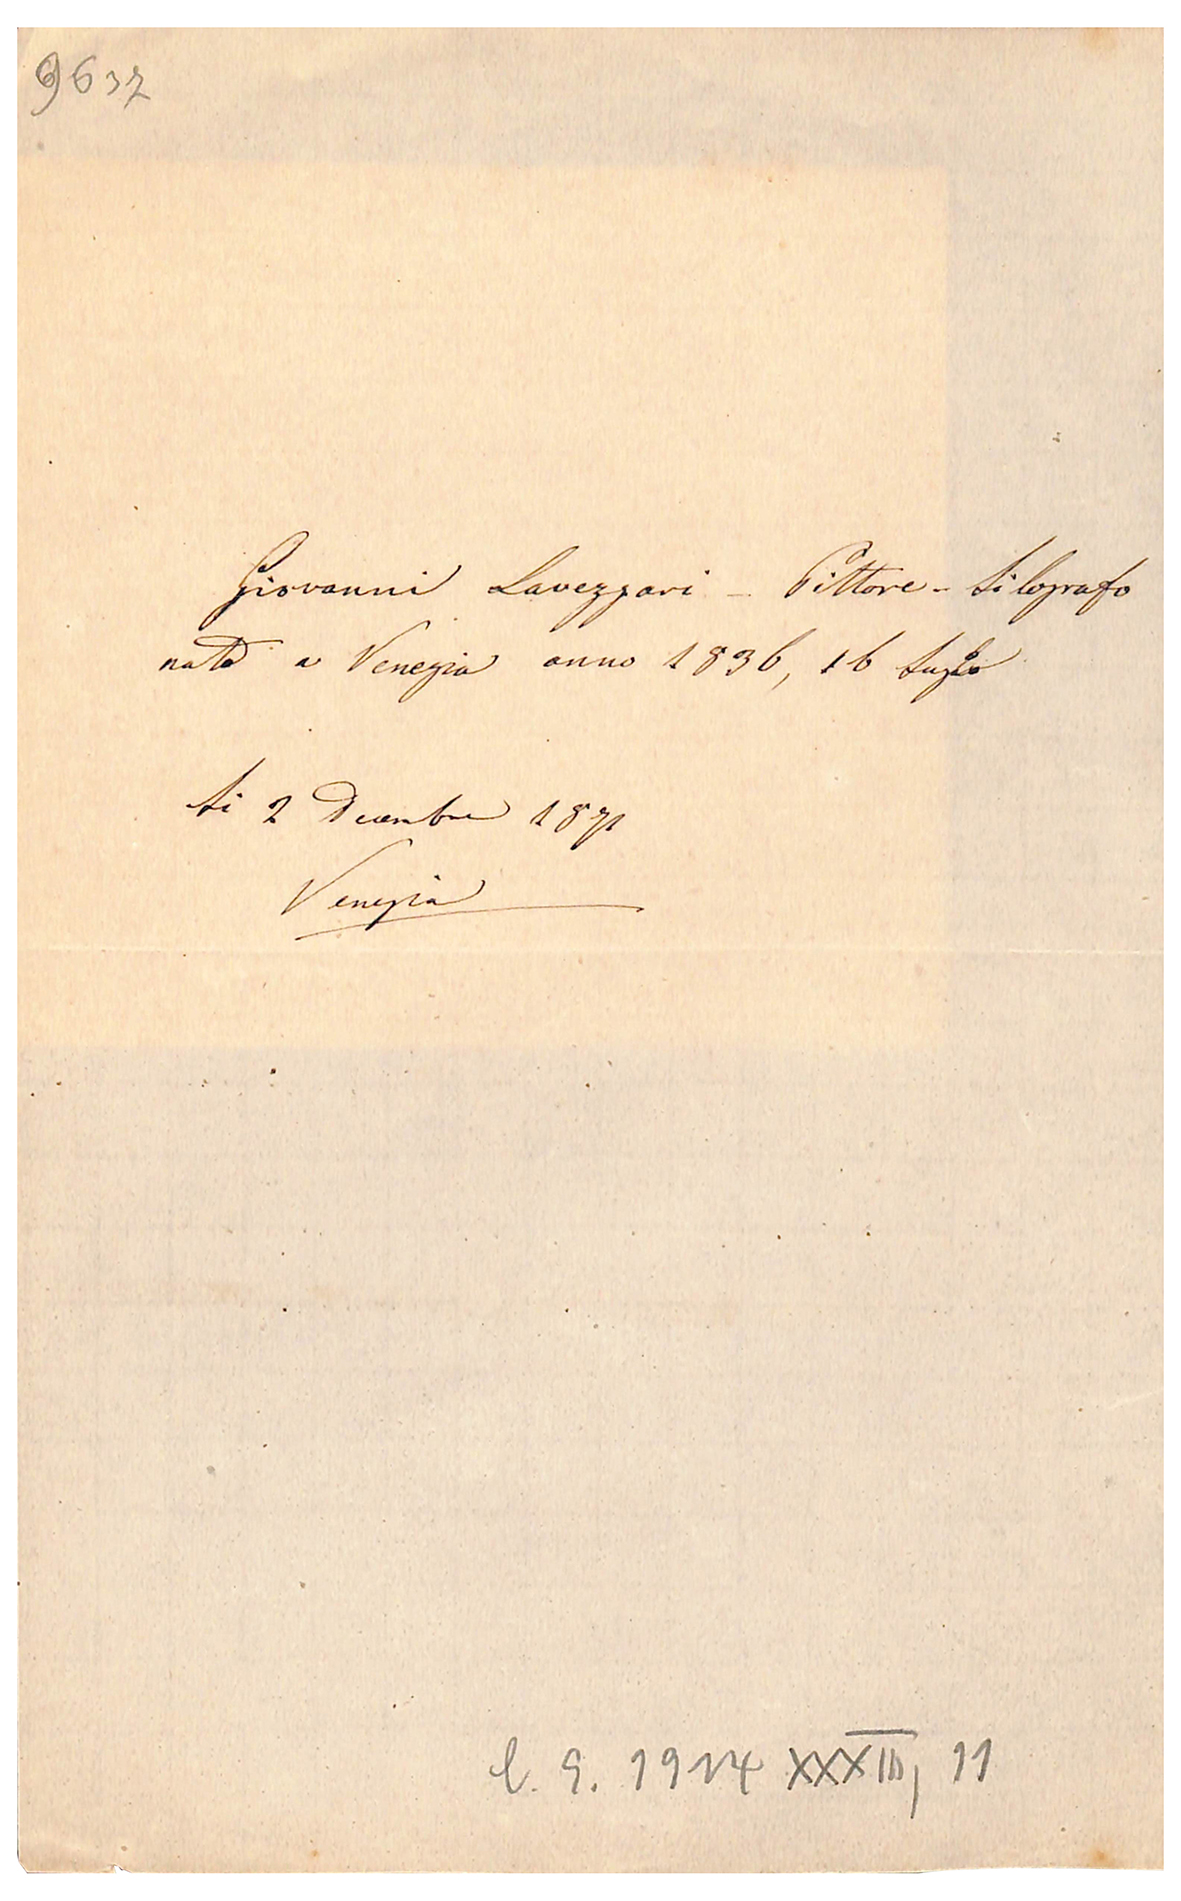 9637
Giovanni Lavezzari - Pittore - Silografo
nato a Venezia anno 1836, 16 Luglio
Li 2 Decembre 1871
Venezia
l. S. 1914 XXXIII, 11